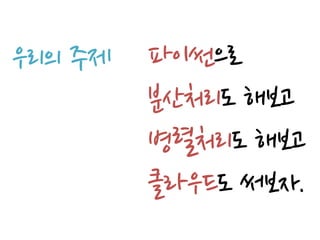 우리의 주제 파이썬으로
분산처리도 해보고
병렬처리도 해보고
클라우드도 써보자.